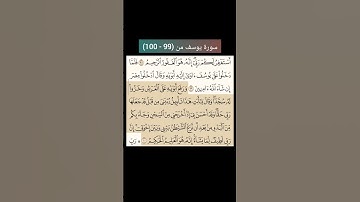 سورة يوسف من (99 - 100)
أَسْتَغْفِرُ لَكُمْ رَبِّىٓ إِنَّهُۥ هُوَ ٱلْغَفُورُ ٱلرَّحِيمُ ٩٨ فَلَمَّا
دَخَلُوا۟ عَلَىٰ يُوسُفَ ءَاوَىٰٓ إِلَيْهِ أَبَوَيْهِ وَقَالَ ٱدْخُلُوا۟ مِصْرَ
إِن شَآءَ ٱللَّهُ ءَامِنِينَ ٩٩ وَرَفَعَ أَبَوَيْهِ عَلَى ٱلْعَرْشِ وَخَرُّوا۟
لَهُۥ سُجَّدًا وَقَالَ يَٰٓأَبَتِ هَٰذَا تَأْوِيلُ رُءْيَٰىَ مِن قَبْلُ قَدْ جَعَلَهَا
رَبِّى حَقًّا وَقَدْ أَحْسَنَ بِىٓ إِذْ أَخْرَجَنِى مِنَ ٱلسِّجْنِ وَجَآءَ بِكُم
مِّنَ ٱلْبَدْوِ مِنۢ بَعْدِ أَن نَّزَغَ ٱلشَّيْطَٰنُ بَيْنِى وَبَيْنَ إِخْوَتِىٓ إِنَّ
رَبِّى لَطِيفٌ لِّمَا يَشَآءُ إِنَّهُۥ هُوَ ٱلْعَلِيمُ ٱلْحَكِيمُ ١٠٠ رَبِّ